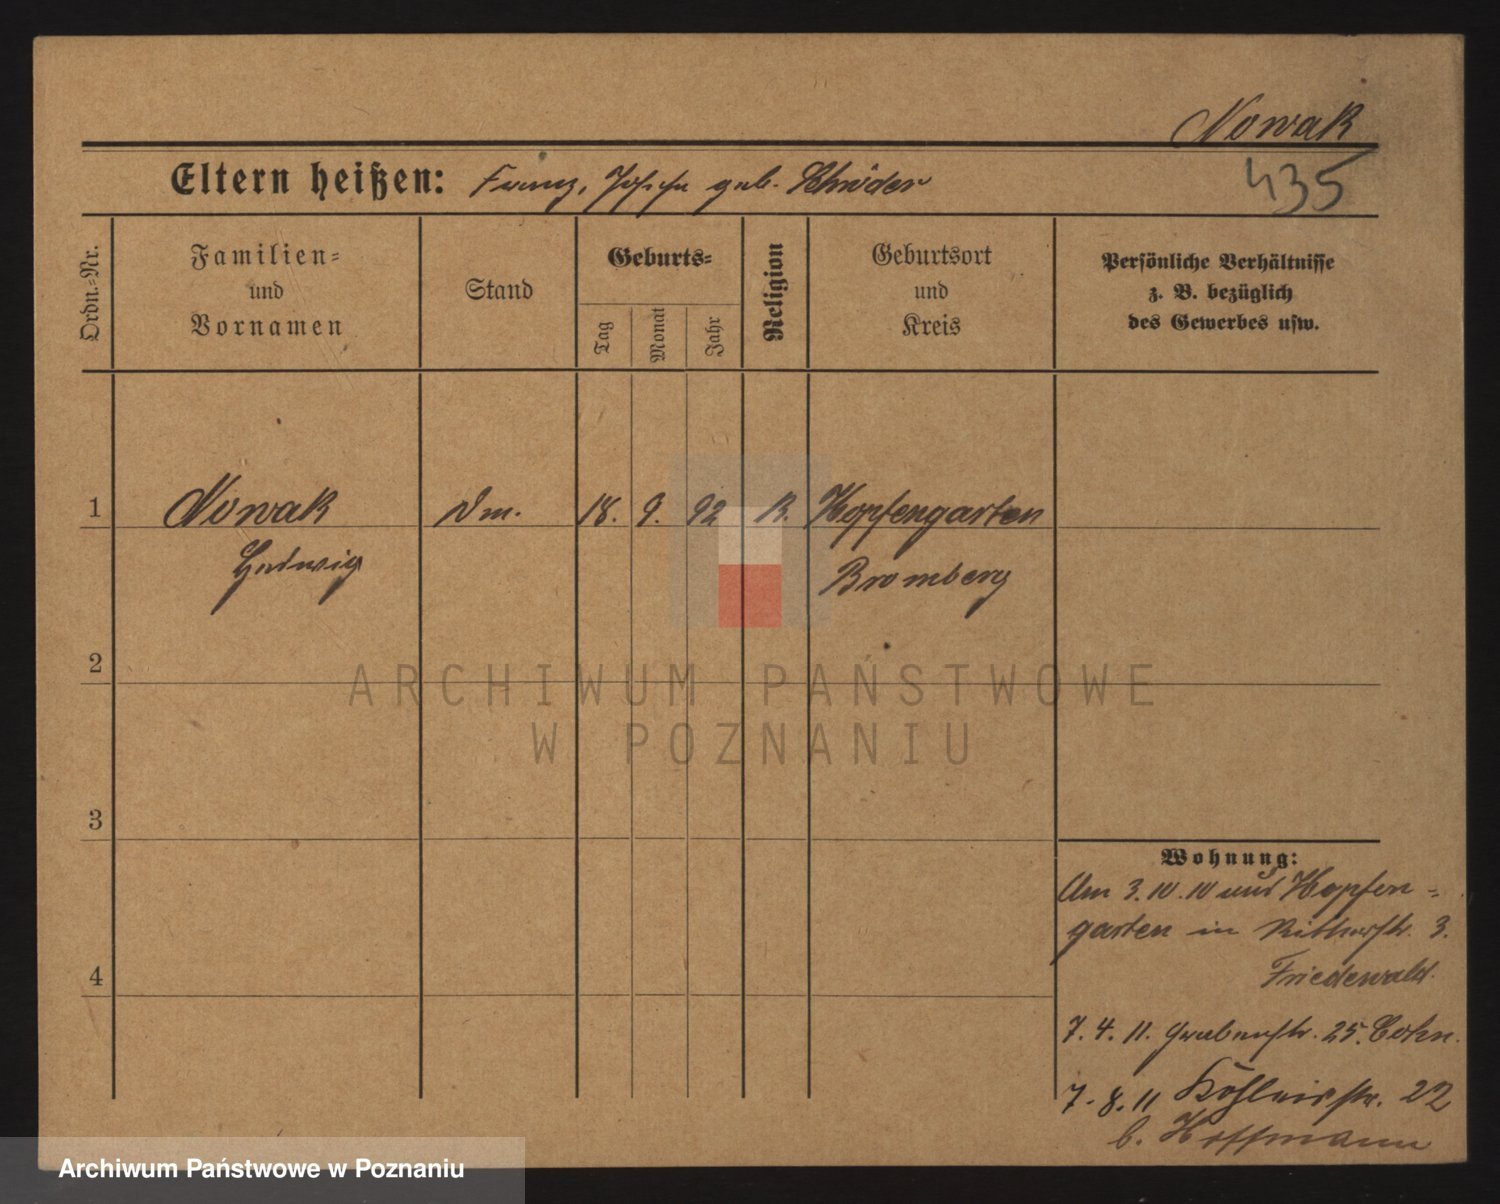 Nowak
435
Eltern heißen: Franz, geb. Schröder
Ordn.-Nr.
Familien-
und
Vornamen
Stand
Geburts-
Tag
Monat
Jahr
Religion
Geburtsort
und
Kreis
Persönliche Verhältnisse
z. B. bezüglich
des Gewerbes usw.
1 Nowak Dm. 18. 9. 92 K. Hopfengarten
Hedwig Bromberg
2
3
4
Wohnung:
Am 3.10.10 aus Hopfen-
garten in Ritterstr. 3.
Friedewald.
7.4.11. Grabenstr. 25. Cohn.
7.8.11 str. 22
b. Hoffmann
ARCHIWUM PAŃSTWOWE
W POZNANIU
Archiwum Państwowe w Poznaniu